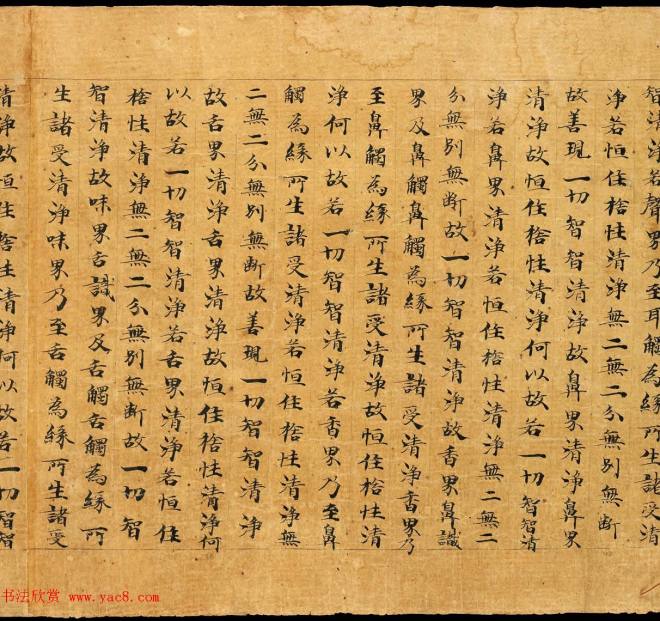 智清淨若聲界乃至耳觸為緣所生諸受清
淨若恒住捨性清淨無二無二分無別無斷
故善現一切智智清淨故鼻界清淨鼻界
清淨故恒住捨性清淨何以故若一切智智清
淨若鼻界清淨若恒住捨性清淨無二無二
分無別無斷故一切智智清淨故香界鼻識
界及鼻觸鼻觸為緣所生諸受清淨香界乃
至鼻觸為緣所生諸受清淨故恒住捨性清
淨何以故若一切智智清淨若香界乃至鼻
觸為緣所生諸受清淨若恒住捨性清淨無
二無二分無別無斷故善現一切智智清淨
故舌界清淨舌界清淨故恒住捨性清淨何
以故若一切智智清淨若舌界清淨若恒住
捨性清淨無二無二分無別無斷故一切智
智清淨故味界舌識界及舌觸舌觸為緣所
生諸受清淨味界乃至舌觸為緣所生諸受
清淨故恒住捨性清淨何以故若一切智智
书法欣赏 www.yac8.com